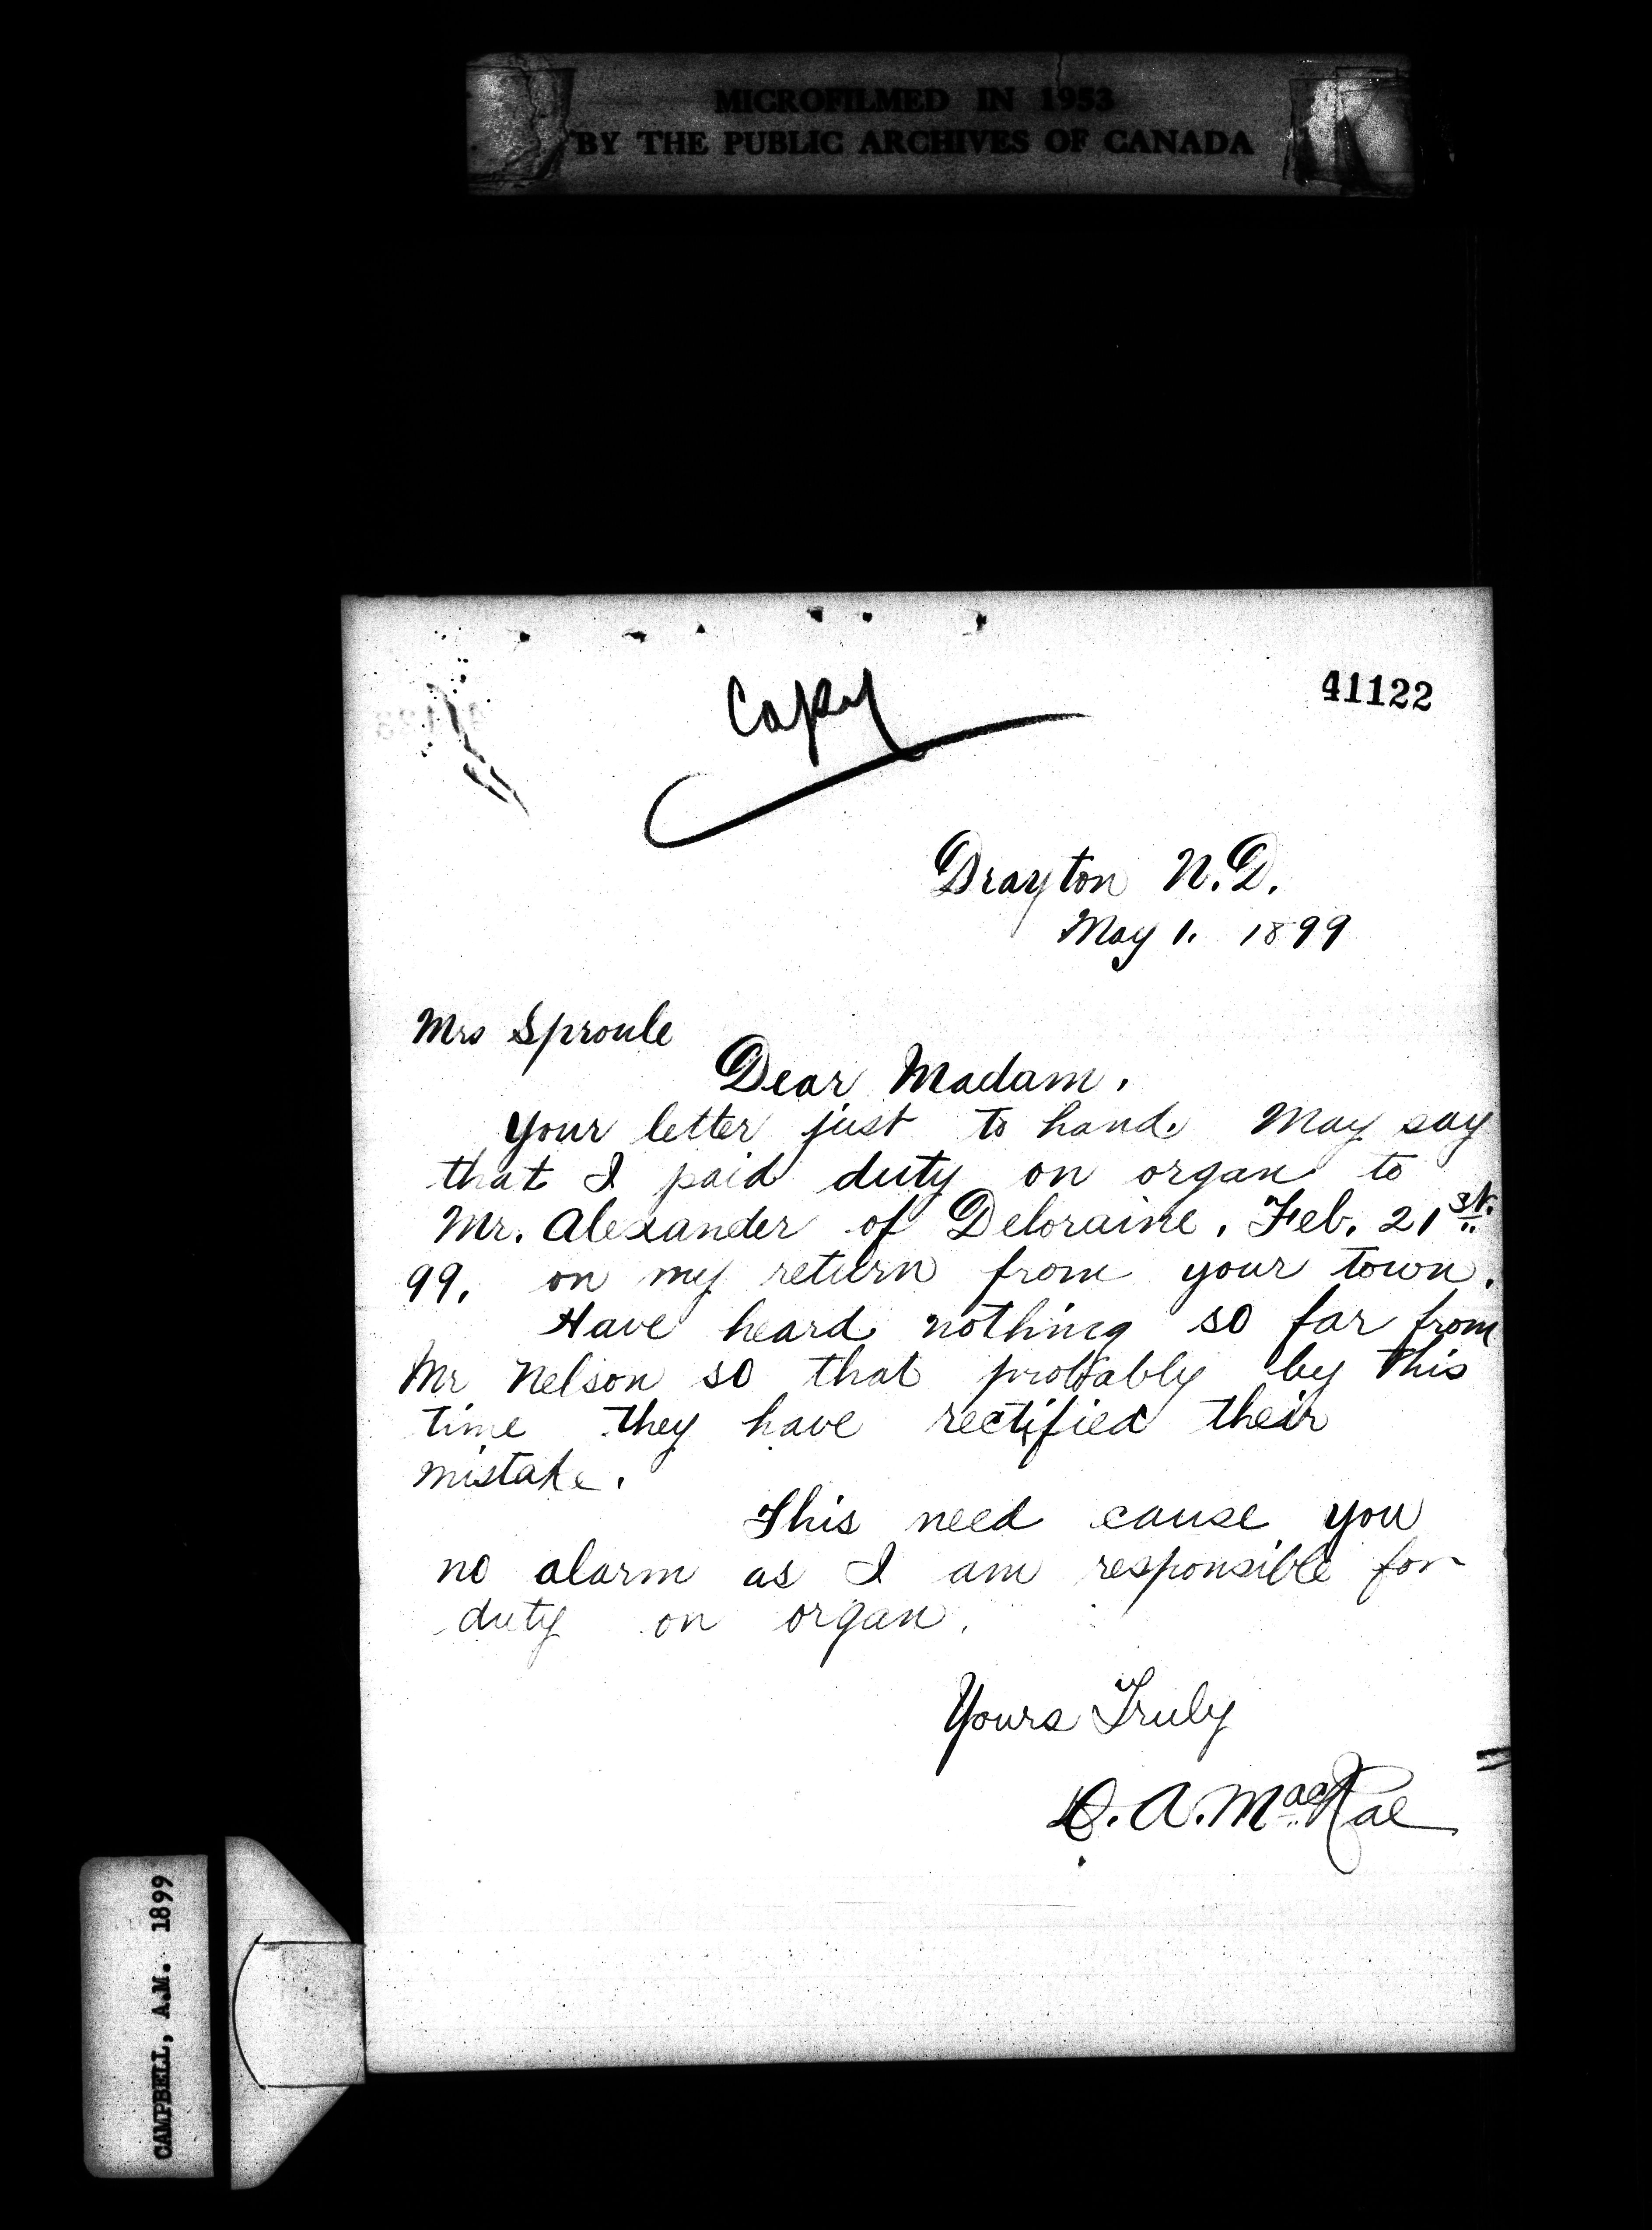 MICROFILMED IN 1953
BY THE PUBLIC ARCHIVES OF CANADA
Copy
41122
Drayton N.D.
May 1. 1899
Mrs Sproule
Dear Madam.
Your letter just to hand. May say
that I paid duty on organ to
Mr. Alexander of Deloraine, Feb. 21st.
99, on my return from your town.
Have heard nothing so far from
Mr Nelson so that probably by this
time they have rectified their
mistake.
This need cause you
no alarm as I am responsible for
duty on organ.
Yours Truly
D. A. MacRae
CAMPBELL, A.M. 1899